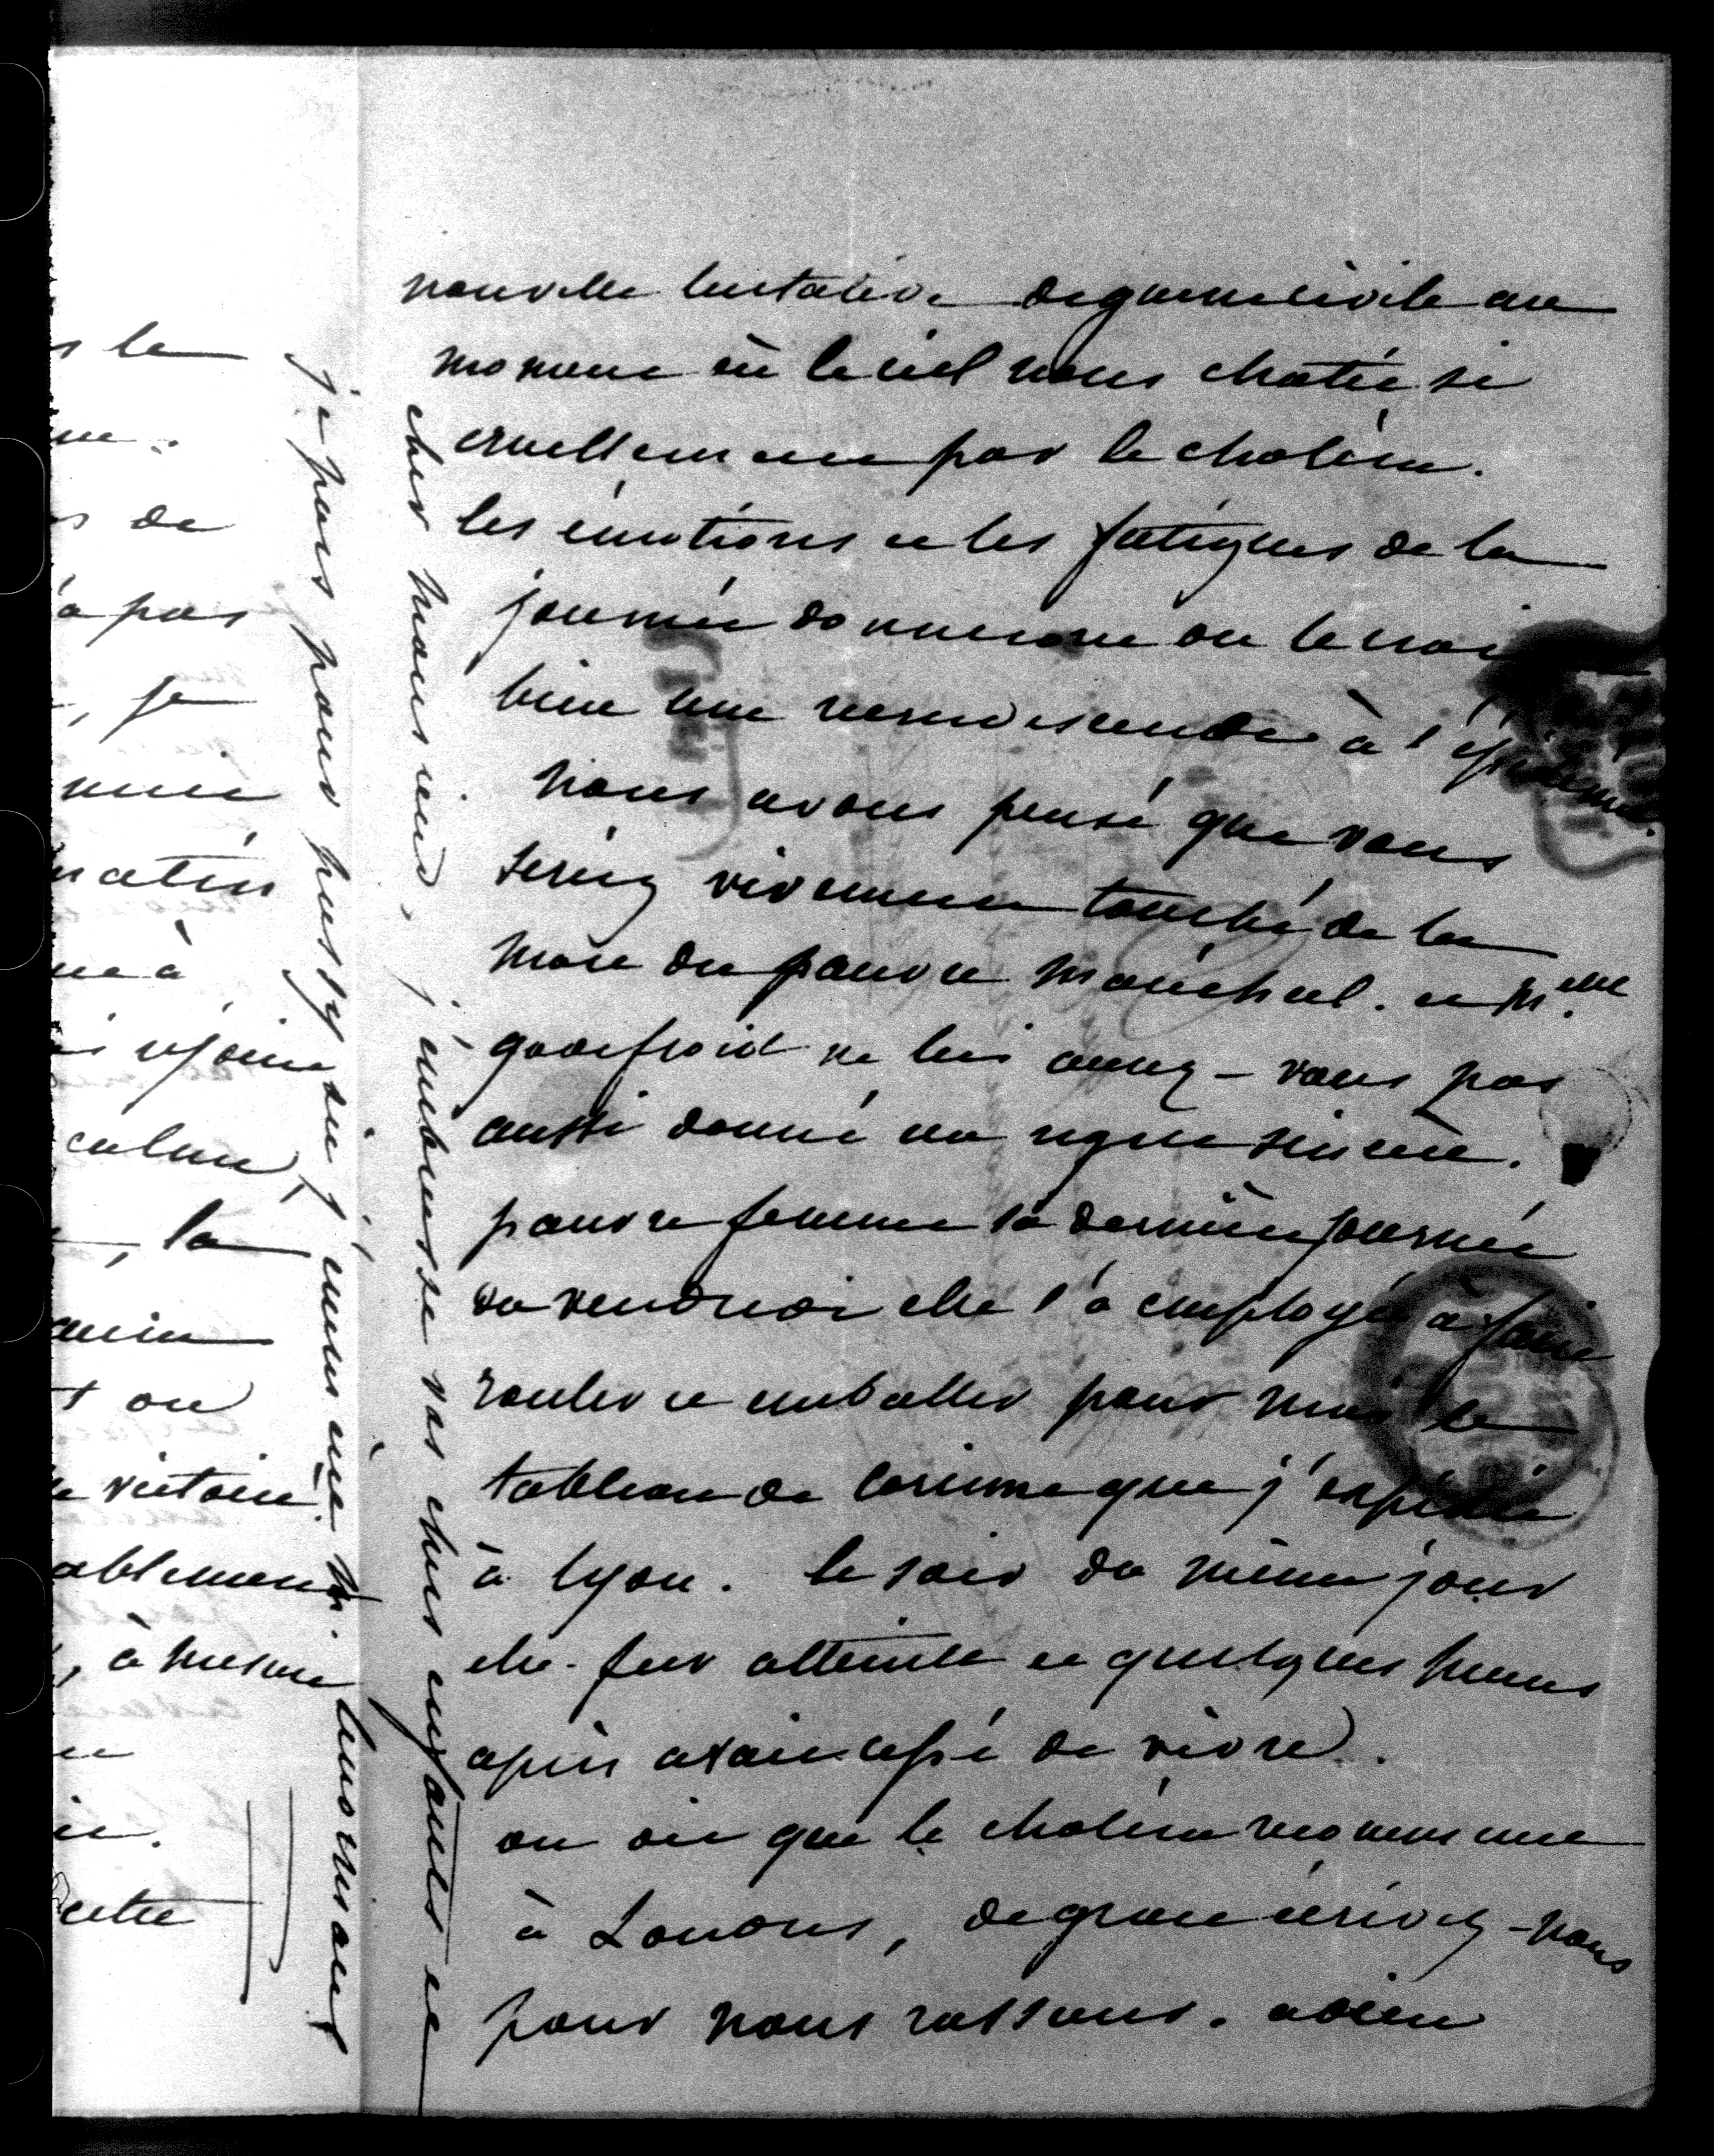 nouvelle tentative de guerre civile au
moment où le ciel nous chatie si
cruellement par le choléra.
les émotions et les fatigues de la
journée donneront on le croit
bien une recrudescence à l'épidémie.
nous avons pensé que vous
seriez vivement touché de la
mort du pauvre maréchal. et Mme
godefroid ne lui aurez-vous pas
aussi donné un regret sincère.
pauvre femme sa dernière journée
du vendredi elle l'a employée à faire
rouler et emballer pour moi le
tableau de Corinne que j'expédie
à lyon. le soir du même jour
elle fut atteinte et quelques heures
après avait cessé de vivre.
on dit que le choléra recommence
à Londres, de grace écrivez-nous
pour nous rassurer. adieu
cher monsieur, j'embrasse vos chers enfants et
je pars pour pussy où j'emmène M. lenormant
s le
s de
'a pas
, je
matin
ue à
calme,
, la
t ou
victoire.
ablement
, à mesure
cette